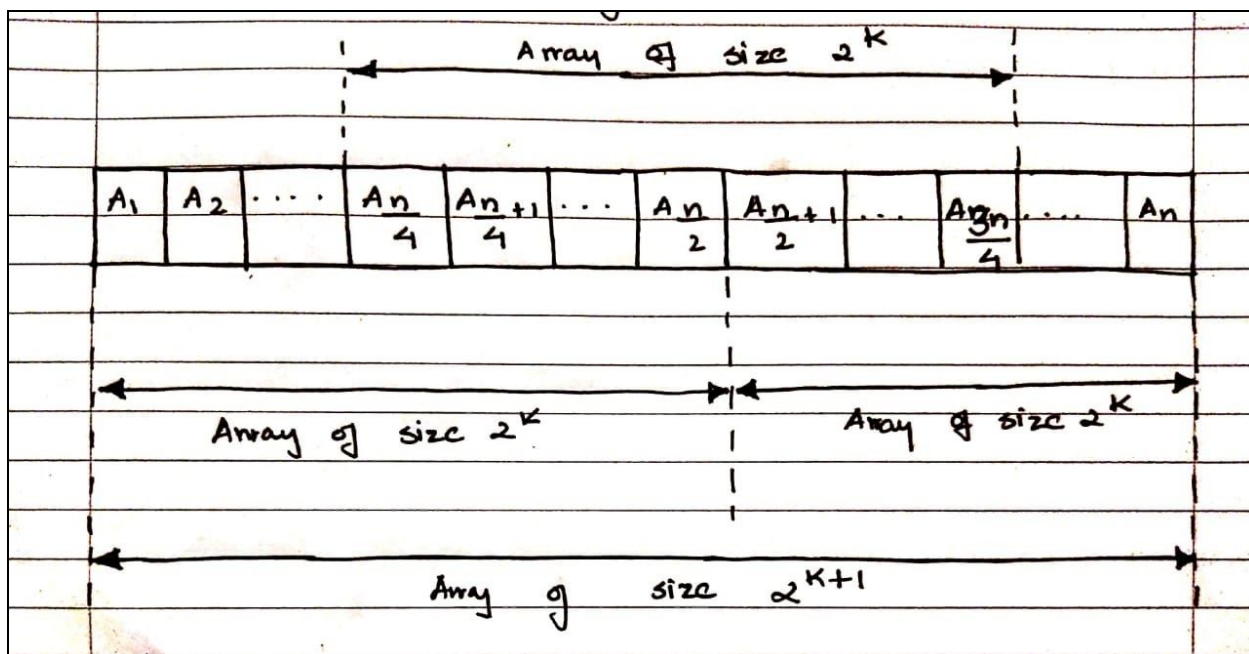 Array of size 2^K
A1 A2 .... An/4 An/4+1 ... An/2 An/2+1 ... A3n/4 .... An
Array of size 2^K Array of size 2^K
Array of size 2^K+1